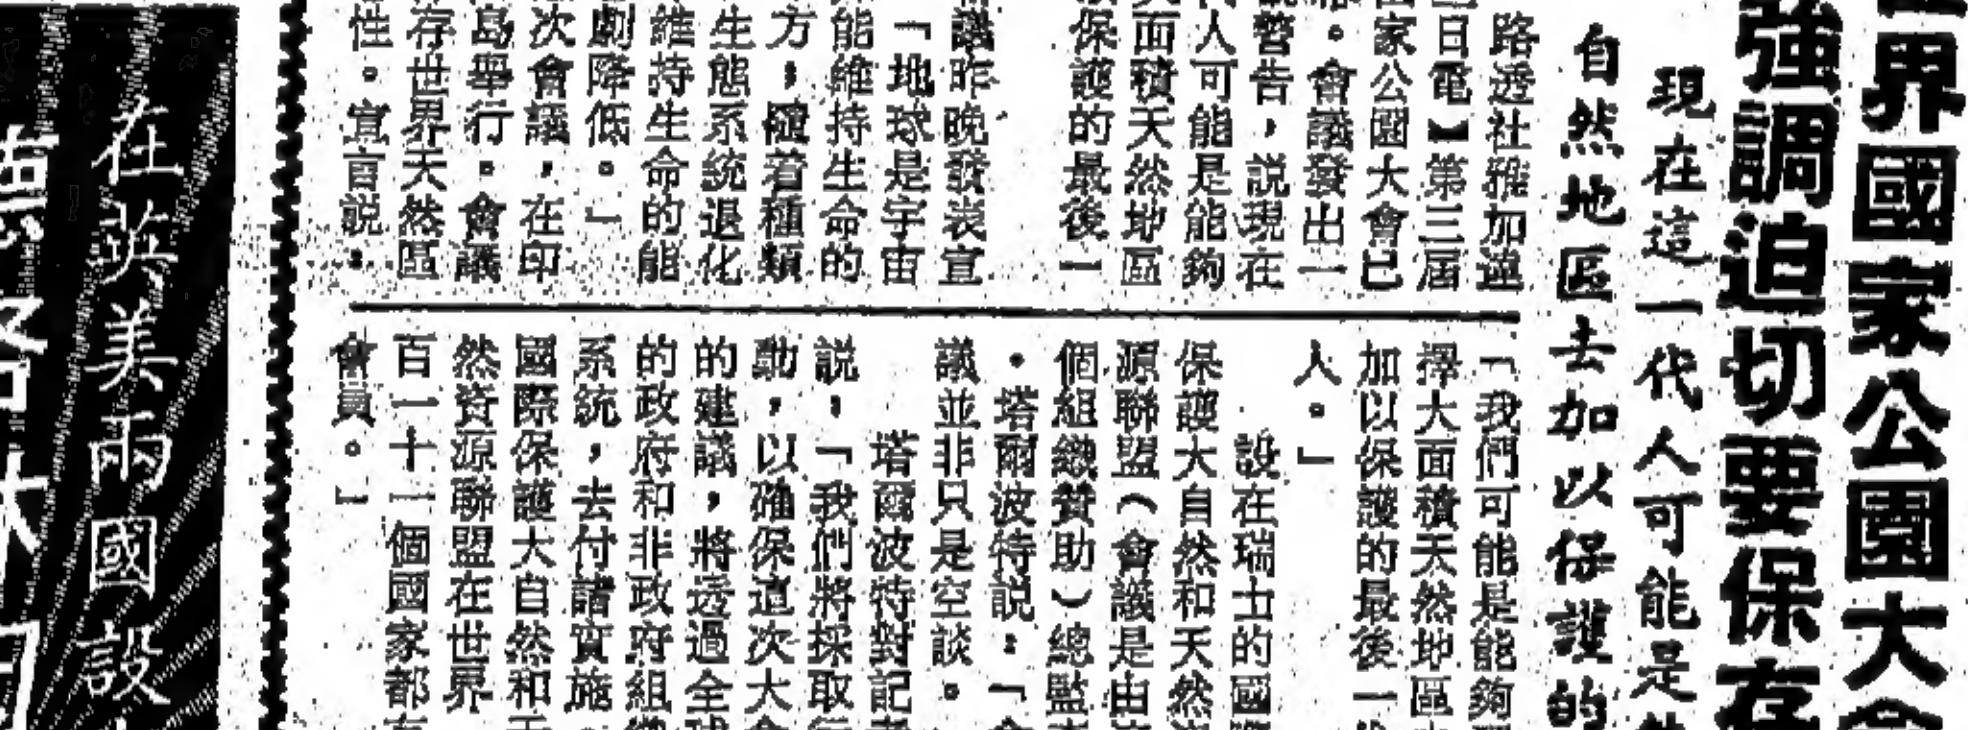 界國家公園大會
強調迫切要保存
現在這一代人可能是
自然地區去加以保護的
路透社雅加達
日電】第三屆
家公園大會已
。會議發出一
警告，説現在
人可能是能夠
面積天然地區
保護的最後一
議昨晚發表宣
「地球是宇宙
能維持生命的
方，隨着種類
生態系統退化
維持生命的能
劇降低。」
次會議，在印
島舉行。會議
存世界天然區
性。宣言説：
「我們可能是能夠
擇大面積天然地區
加以保護的最後一
人。」
設在瑞士的國
保護大自然和天然
源聯盟（會議是由
個組織贊助）總監
。塔爾波特説：「
議並非只是空談。
塔爾波特對記
説，「我們將採取
動，以確保這次大
的建議，將透過全
的政府和非政府組
系統，去付諸實施
國際保護大自然和
然資源聯盟在世界
百一十一個國家都
會員。」
在英美兩國設